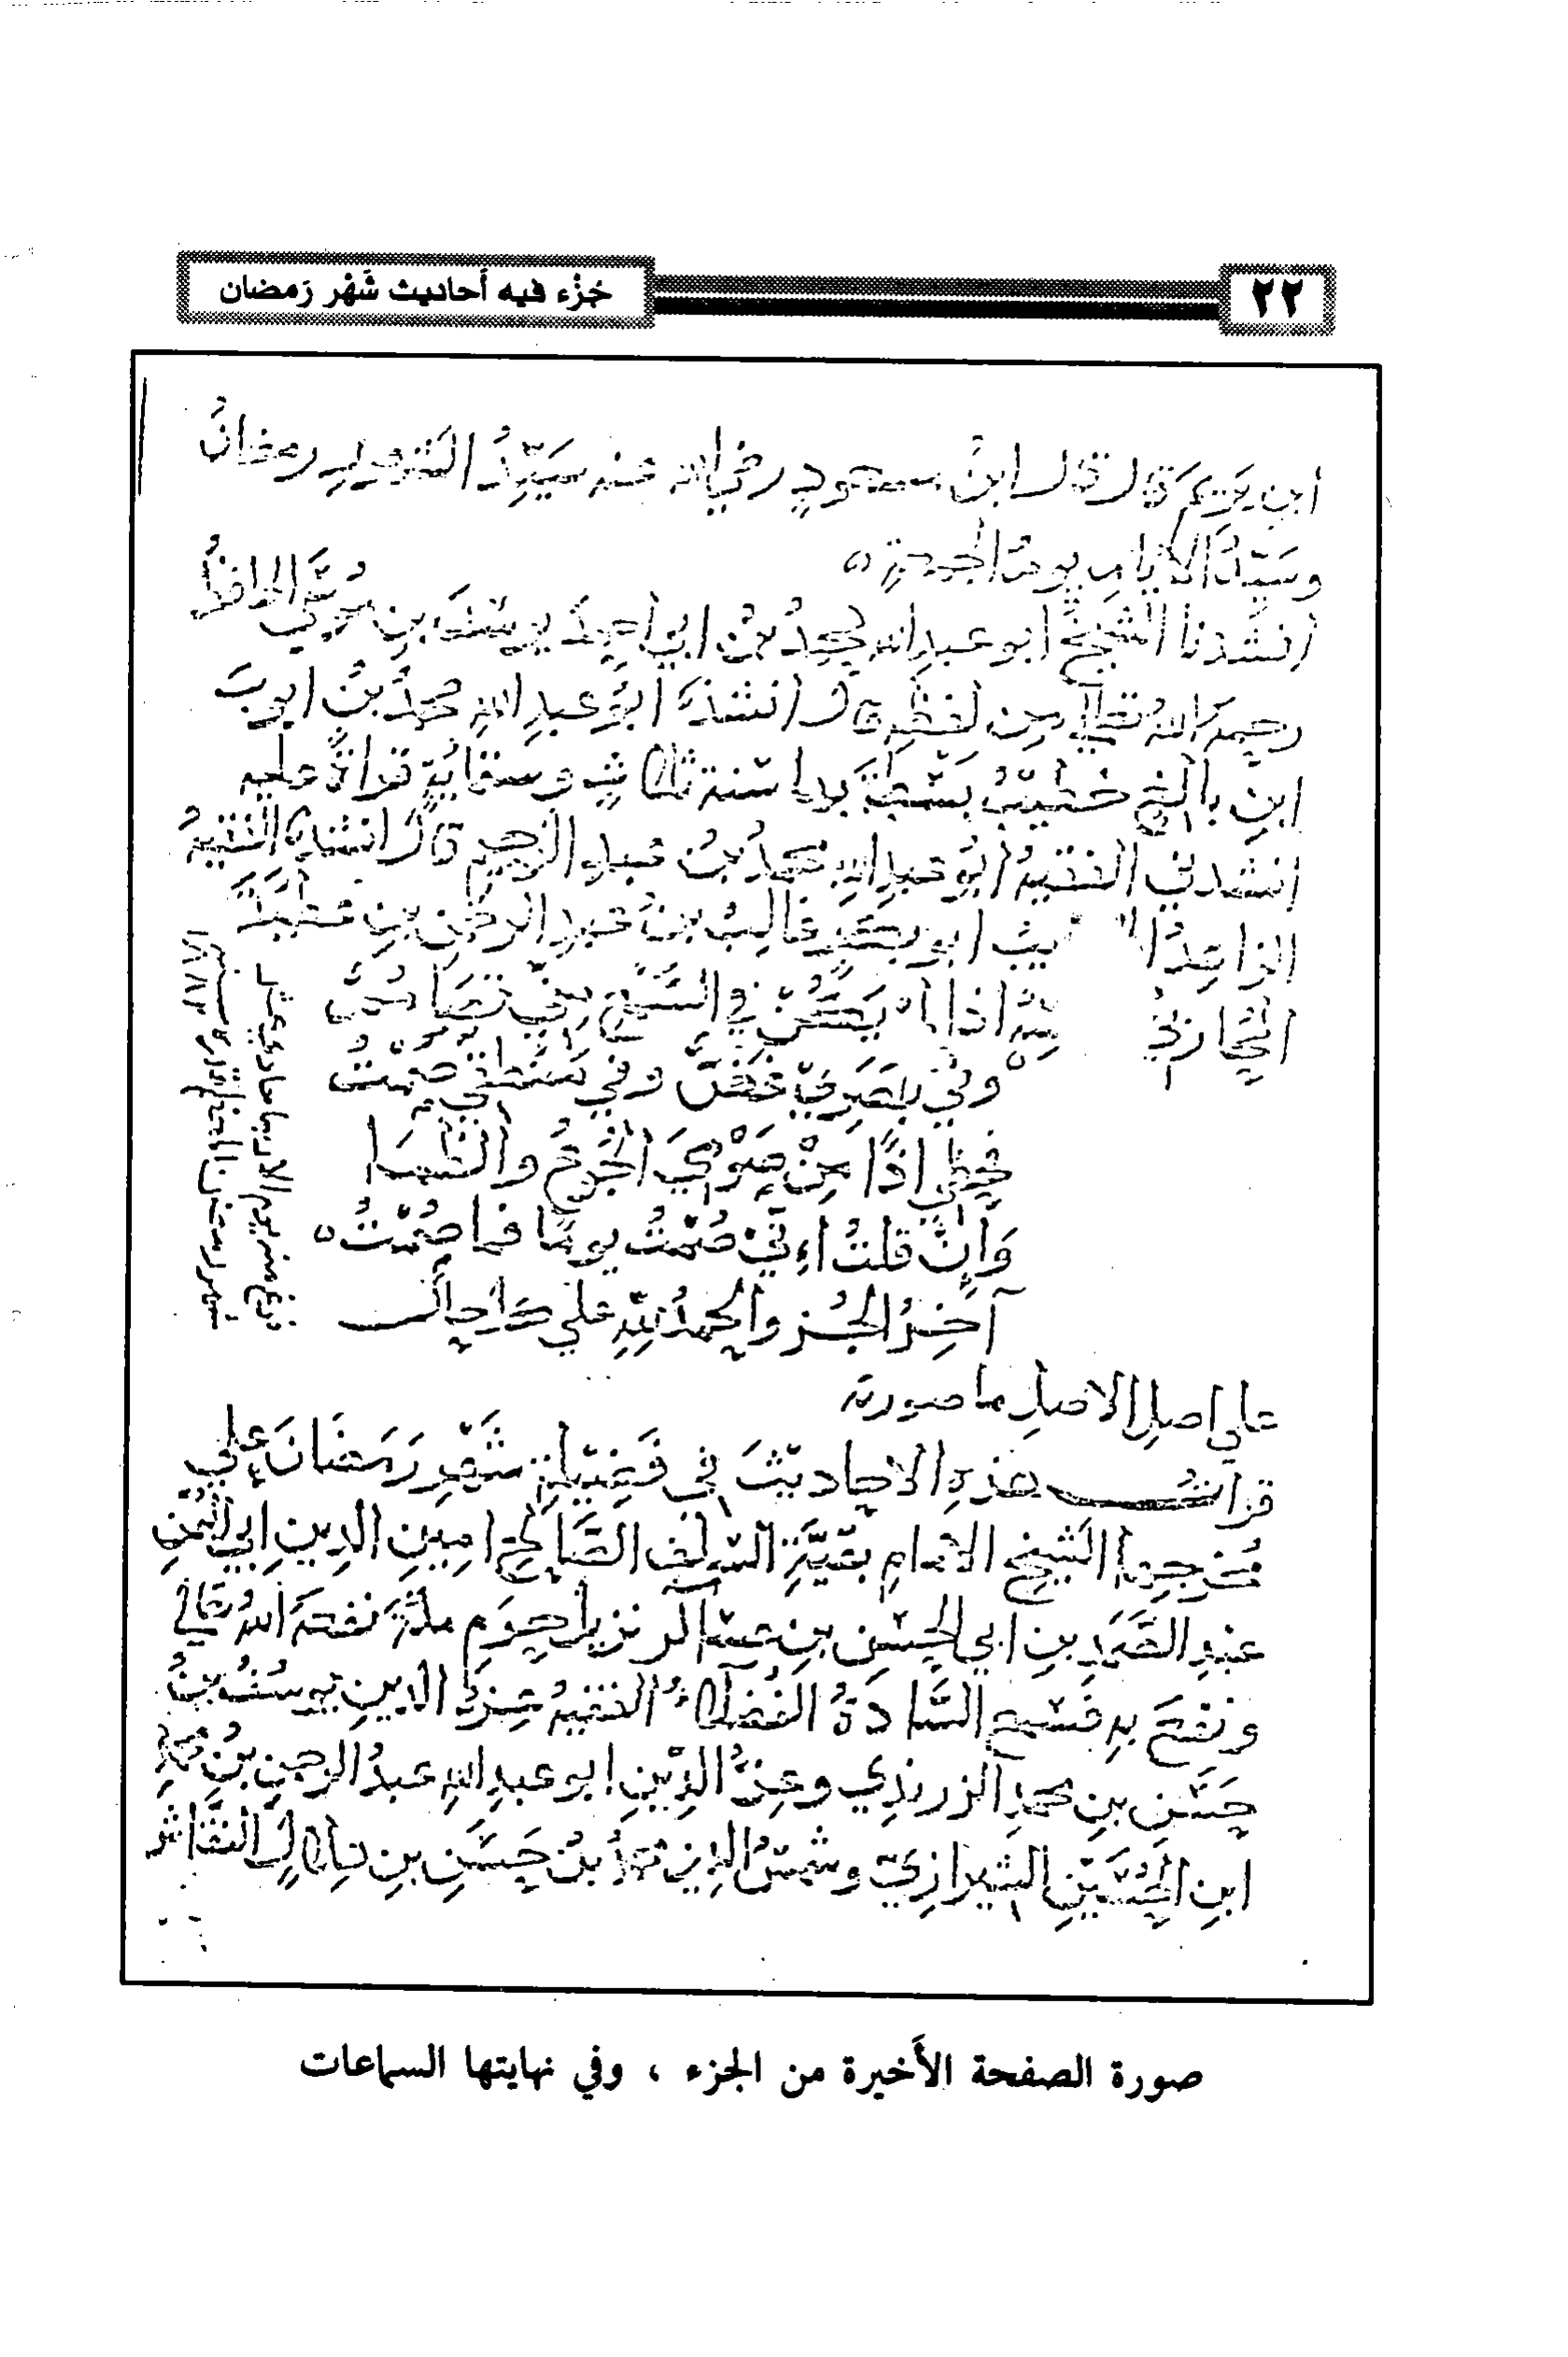 ٢٢
جُزْء فيه أَحاديث شَهْر رَمضان
ابن يَرِيمَ قال قال ابنُ مسعودٍ رضي الله عنه سَيِّدُ الشهورِ رمضانُ
وسَيّدُ الايامِ يومُ الجمعةِ
انشدنا الشيخُ ابو عبدِ الله محمدُ بنُ ابي احمدَ يوسفَ بنِ الحافظُ
رحمهُ اللهُ تعالى مِن لفظِهِ قال انشدنا ابُو عبدِ اللهِ محمدُ بنُ ايوبَ
ابنِ خطيبُ بها سَنة ثلاثٍ وستمايةٍ قراةً عليه
انشدني الفقيهُ ابُو عبدِ اللهِ محمدُ بنُ عبدِ الرحيمِ قالَ انشدنا الفقيهُ
الزاهدُ ابو بكرٍ غالبُ بنُ عبدِ الرحمنِ بنِ عطيةَ
المُحَارِبيُّ اذا لم يَكُنْ في السَّمْعِ مِنّي تَصَامُمٌ
وفي بَصَرِي غَضٌّ وفي مَنْطِقي صَمْتُ
فحظِّي اذًا مِنْ صَوْمِيَ الجُوعُ والظَّمَا
وَانْ قلتُ اِنّي صُمْتُ يومًا فما صُمْتُ
آخِرُ الجُزءِ والحمدُ للهِ على كل حال
على اصلِ الاصلِ ما صورته
قراتُ هذهِ الاحاديثَ في فَضِيلةِ شَهْرِ رَمَضَانَ على
مُخرجِها الشيخِ الامامِ بقيَّةِ السلفِ الصَّالحِ امينِ الدينِ ابي اليُمْنِ
عبدِ الصَّمَدِ بنِ ابي الحسَنِ بنِ عساكر نزيلِ حرَمِ مكةَ نفعهُ اللهُ تعالى
ونفعَ بهِ فسَمِعَ السَّادَةُ الفُضَلاءُ الفقيهُ عِزُّ الدينِ يوسُفُ بنُ
حَسَنِ بنِ محمدٍ الزرندِي وعِزُّ الدِّينِ ابو عبدِ اللهِ عبدُ الرحمنِ بنُ محمدِ
ابنِ الحُسَيْنِ الشيرازيّ وشمسُ الدينِ محمدُ بنُ حَسَنِ بنِ النقاش
صورة الصفحة الأخيرة من الجزء ، وفي نهايتها السماعات